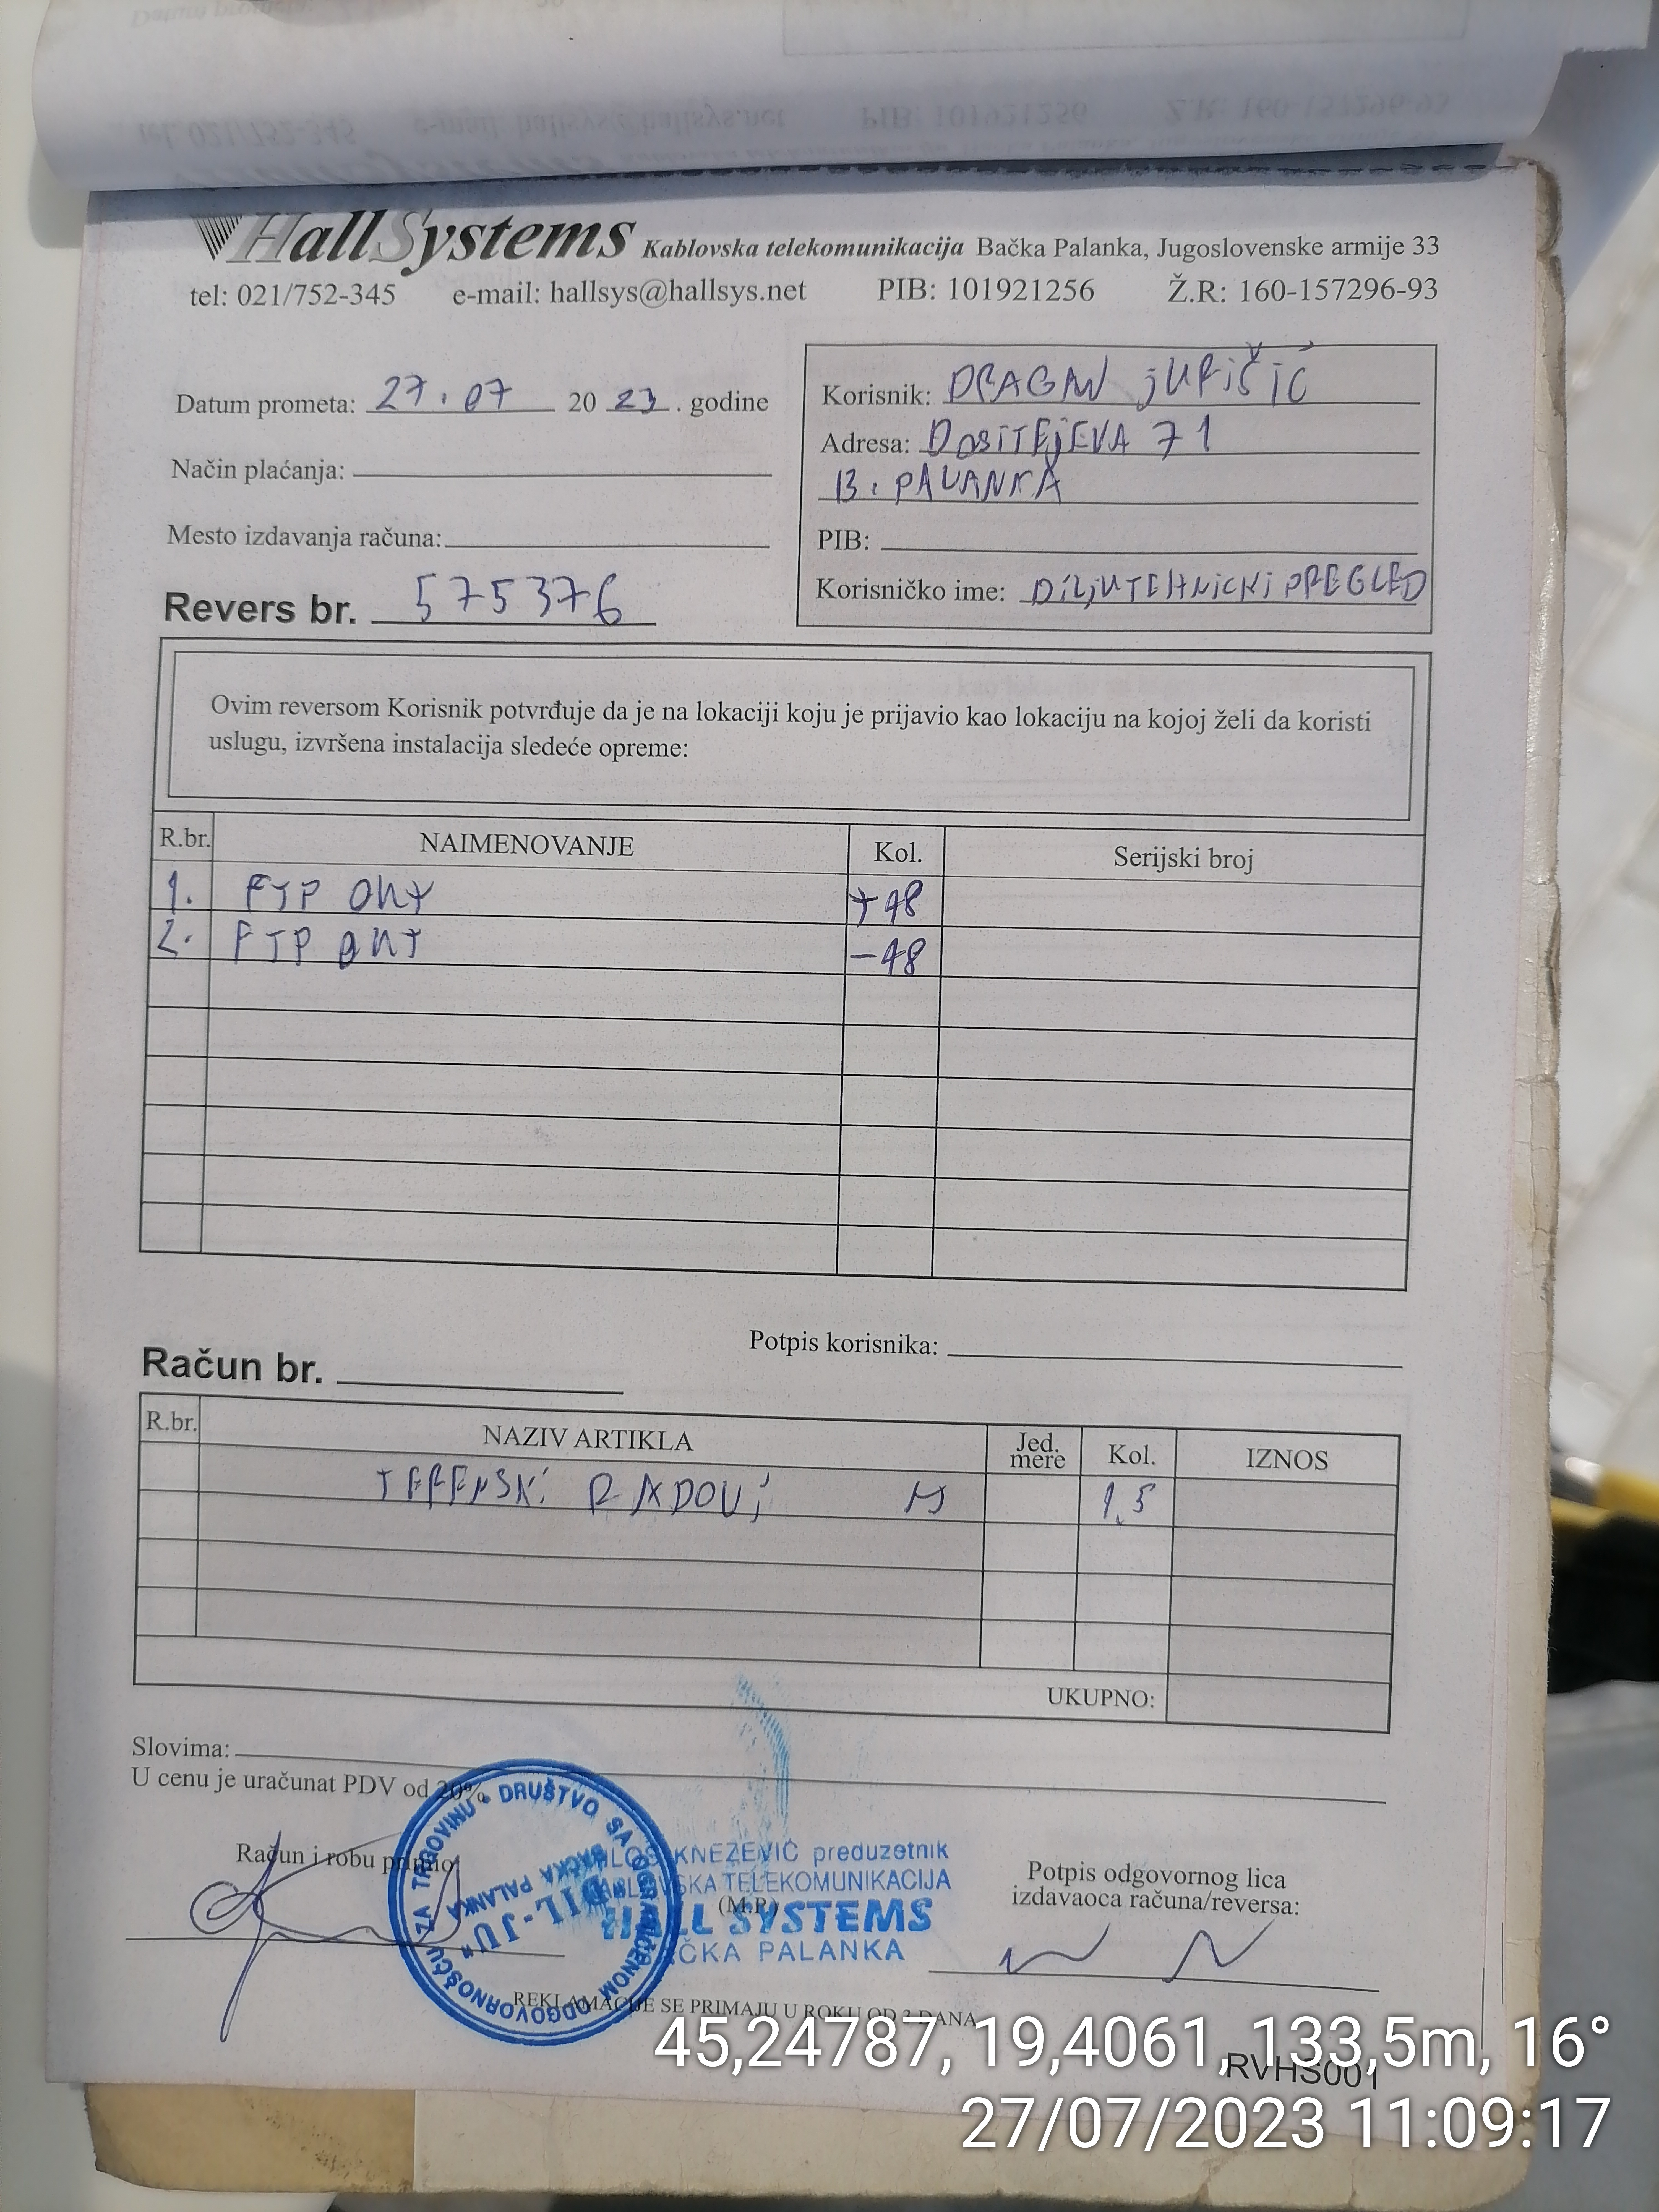 HallSystems Kablovska telekomunikacija Bačka Palanka, Jugoslovenske armije 33
tel: 021/752-345 e-mail: hallsys@hallsys.net PIB: 101921256 Ž.R: 160-157296-93
Datum prometa: 27.07 2023. godine
Način plaćanja:
Mesto izdavanja računa:
Revers br. 575376
Korisnik: DRAGAN JURIŠIĆ
Adresa: DOSITEJEVA 71
B. PALANKA
PIB:
Korisničko ime: DILJUTEHNICKI PREGLED
Ovim reversom Korisnik potvrđuje da je na lokaciji koju je prijavio kao lokaciju na kojoj želi da koristi
uslugu, izvršena instalacija sledeće opreme:
R.br. NAIMENOVANJE Kol. Serijski broj
1. FTP ONT +48
2. FTP ONT -48
Potpis korisnika:
Račun br.
R.br. NAZIV ARTIKLA Jed. mere Kol. IZNOS
TERENSKI RADOVI H 1,5
UKUPNO:
Slovima:
U cenu je uračunat PDV od 20%
Račun i robu primio
DRUŠTVO SA OGRANIČENOM ODGOVORNOŠĆU ZA TRGOVINU
"DIL-JU"
BAČKA PALANKA
KNEŽEVIĆ preduzetnik
TELEKOMUNIKACIJA
(M.P.)
HALL SYSTEMS
BAČKA PALANKA
Potpis odgovornog lica
izdavaoca računa/reversa:
REKLAMACIJE SE PRIMAJU U ROKU OD 3 DANA
RVHS001
45,24787, 19,4061, 133,5m, 16°
27/07/2023 11:09:17